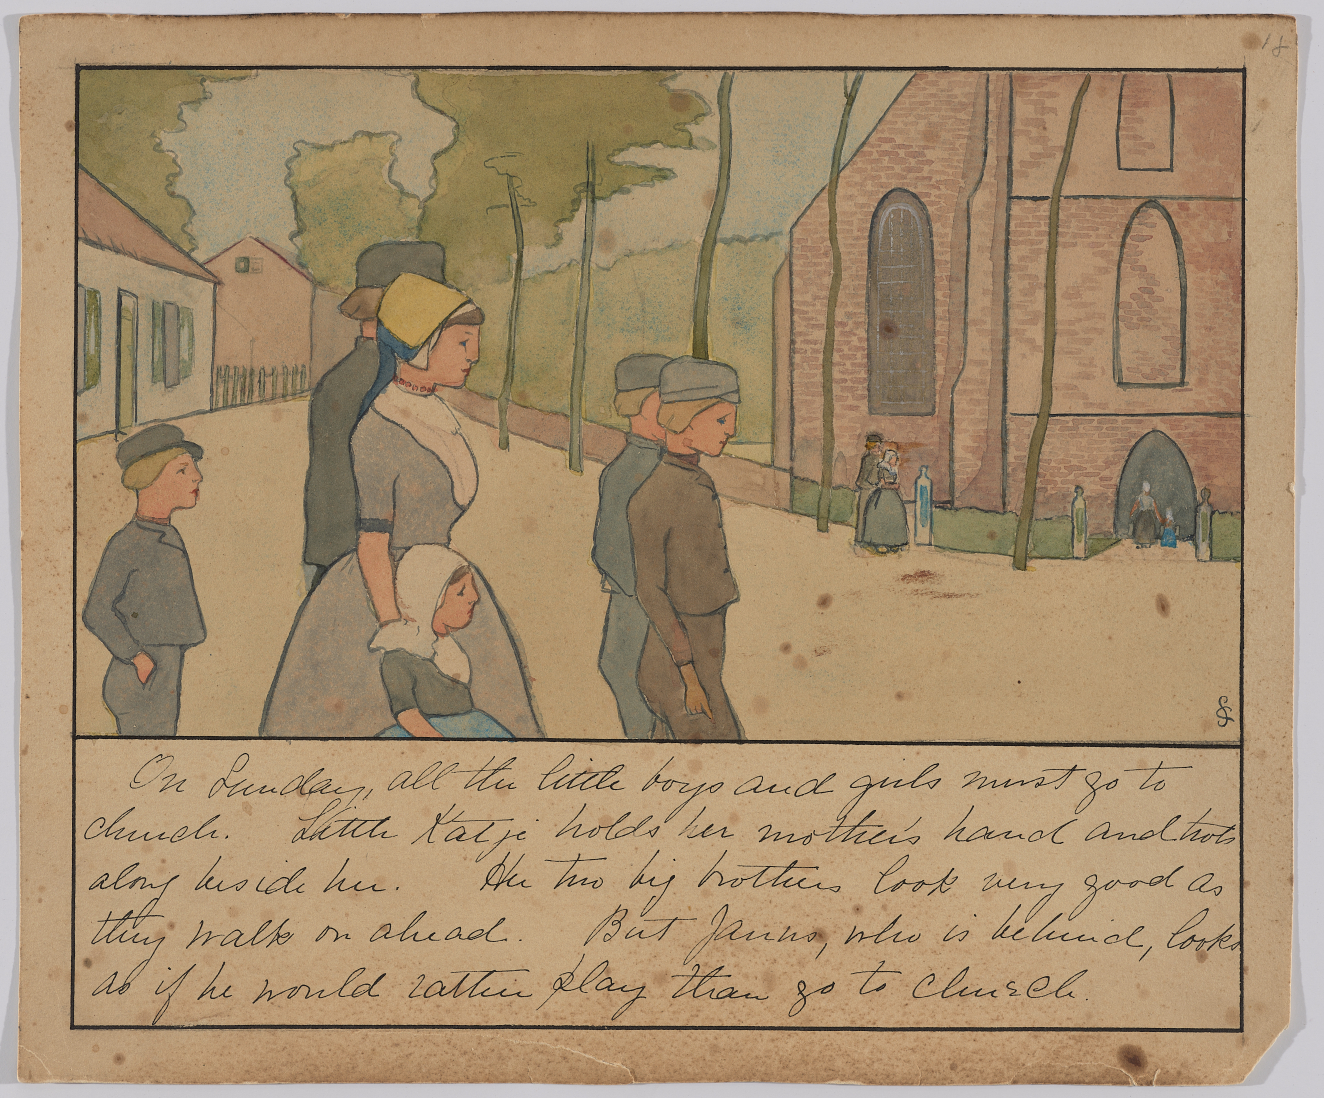 18
On Sunday, all the little boys and girls must go to
church. Little Katje holds her mother's hand and trots
along beside her. Her two big brothers look very good as
they walk on ahead. But Janns, who is behind, looks
as if he would rather play than go to church.